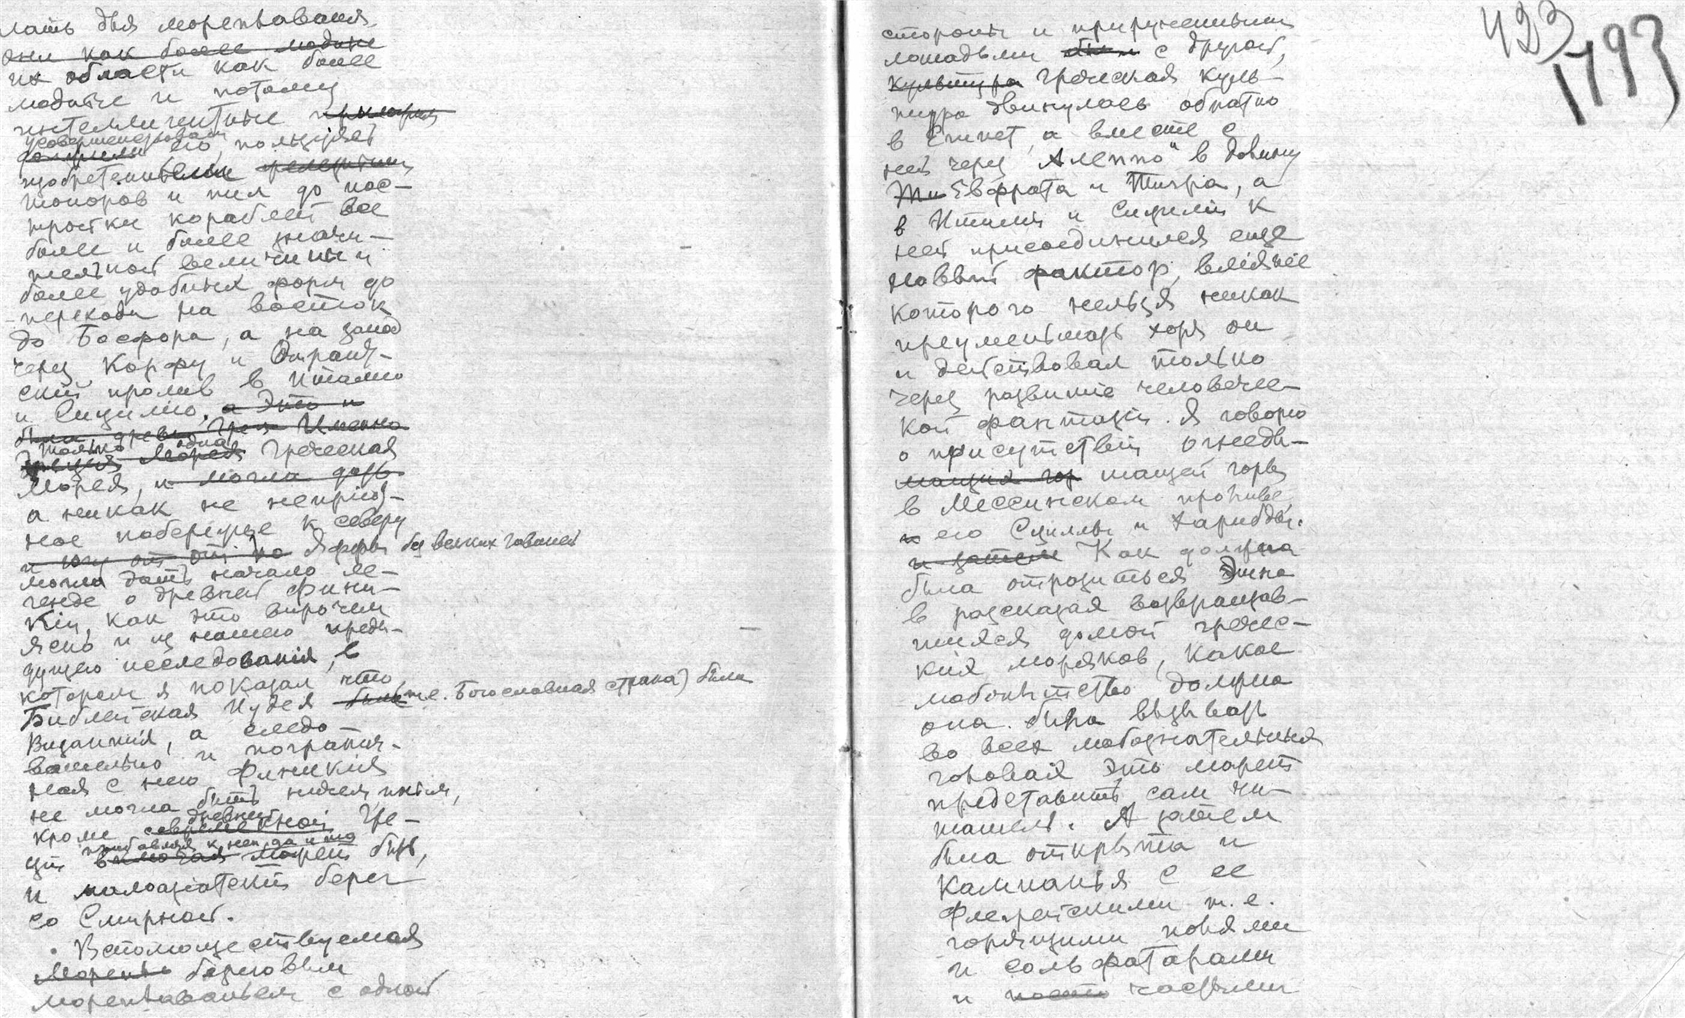 лать для мореплавания
они как более модные
их области как более
модные и потому
интеллигентные
усовершенствовали
его пользуясь
изобретением
топоров и пил до пос-
тройки кораблей все
более и более значи-
тельной величины и
более удобных форм до
перехода на восток
до Босфора, а на запад
через Корфу и Отрант-
ский пролив в Италию
и Сицилию. а Это и
была древн. Грец Именно
только одна
Морея Греческая
Морея, и могла дать
а никак не неприют-
ное побережье к северу
и югу от Яффы без всяких гаваней
могла дать начало ле-
генде о древней Фини-
кіи, как это впрочем
ясно и из нашего преды-
дущего исследованія, в
котором я показал что
Библейская Иудея была (т.е. Богославная страна) была
Византия, а следо-
вательно и погранич-
ная с нею Финикия
не могла быть ничем иным,
кроме современной Гре-
древней
прибавляя к ней да и то
ции включая может быть,
и малоазіатскій берег
со Смирной.
Вспомоществуемая
Морепл береговым
мореплаваньем с одной
стороны и прирученными
лошадьми был с другой,
культура греческая куль-
тура двинулась обратно
в Египет, а вместе с
ней через "Алеппо" в долину
Ти Евфрата и Тигра, а
в Италии и Сицилии к
ней присоединился еще
новый фактор, вліяніе
которого нельзя никак
преуменьшать хотя он
и действовал только
через развитіе человечес-
кой фантазіи. Я говорю
о присутствіи огнеды-
мащих гор шащей горы
в Мессинском проливе,
и его Сциллы и Харибды.
и затем Как должна
была отразиться Этна
в рассказах возвращав-
шихся домой гречес-
ких моряков, какое
любопытство должна
она была вызывать
во всех любознательных
головах это может
представить сам чи-
татель. А затем
была открыта и
Кампанья с ее
Флегрейскими т.е.
горящими полями
и сольфатарами
и частыми
423
1793